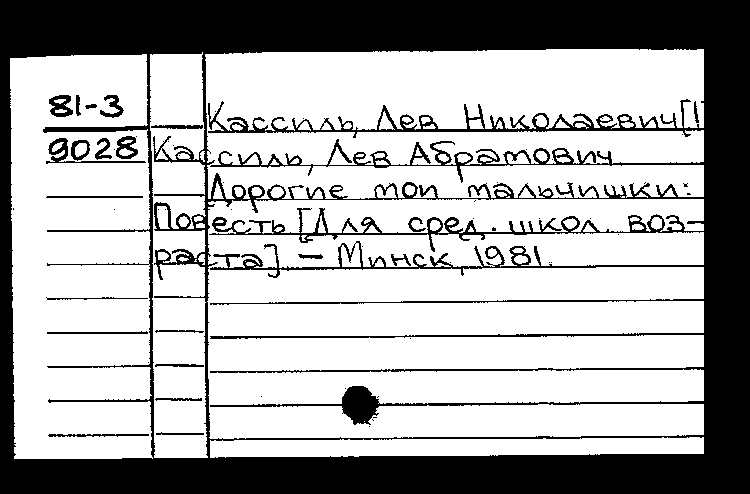 81-3
Кассиль, Лев Николаевич[!]
9028 Кассиль, Лев Абрамович
Дорогие мои мальчишки:
Повесть [Для сред. школ. воз-
раста] – Минск, 1981.